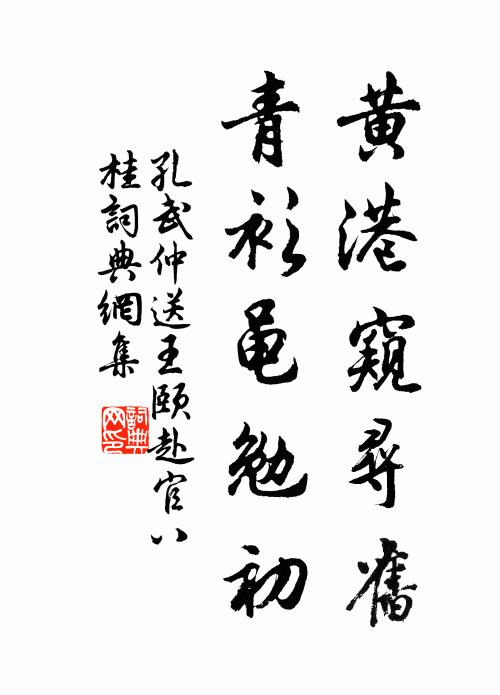 黄港窺尋舊
青衫黾勉初
孔武仲送王頤赴官八
桂詞典網集
詞典
网印